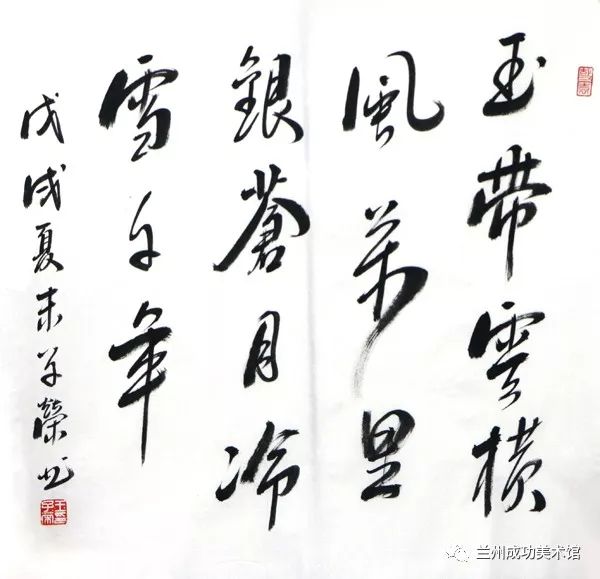 玉帶雲橫
風萬里
銀蒼月冷
雪千年
戊戌夏末子榮书
兰州成功美术馆